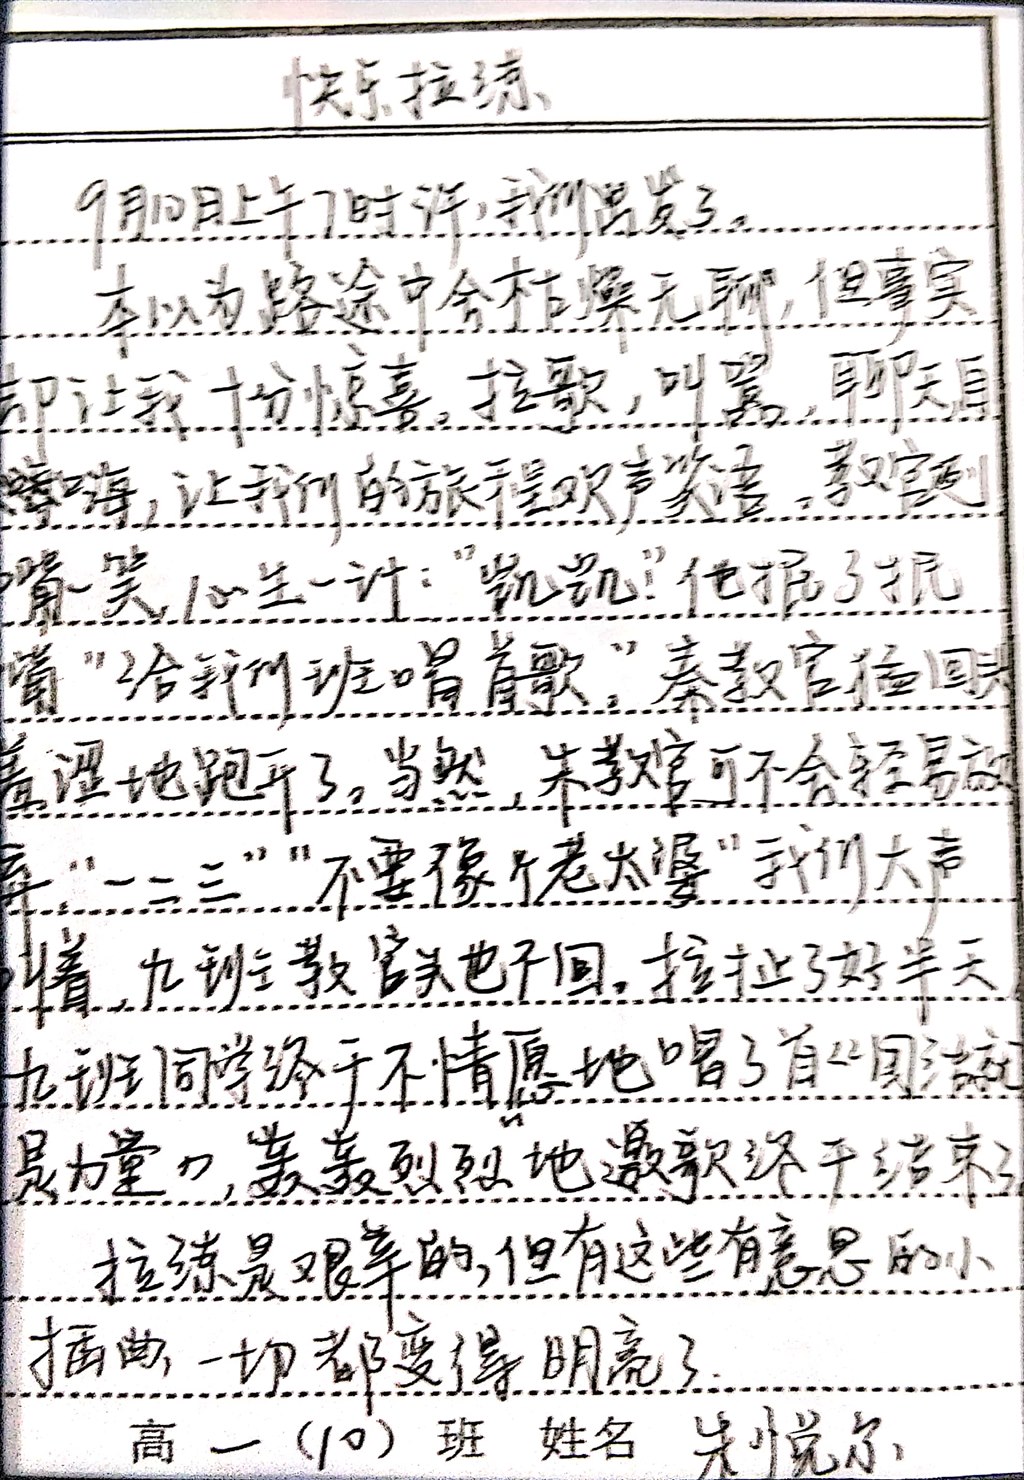 快乐拉练
9月10日上午7时许，我们出发了。
本以为路途中会枯燥无聊，但事实
却让我十分惊喜。拉歌，叫嚣，聊天自
嗨，让我们的旅程欢声笑语。教官咧
嘴一笑，心生一计："凯凯！"他抿了抿
嘴"给我们班唱首歌。"秦教官猛回头
羞涩地跑开了。当然，朱教官可不会轻易放
弃。"一二三""不要像个老太婆"我们大声
叫着，九班教官头也不回。拉扯了好半天，
九班同学终于不情愿地唱了首"团结就
是力量"，轰轰烈烈地邀歌终于结束了
拉练是艰辛的，但有这些有意思的小
插曲，一切都变得明亮了.
高一（10）班 姓名 朱悦尔